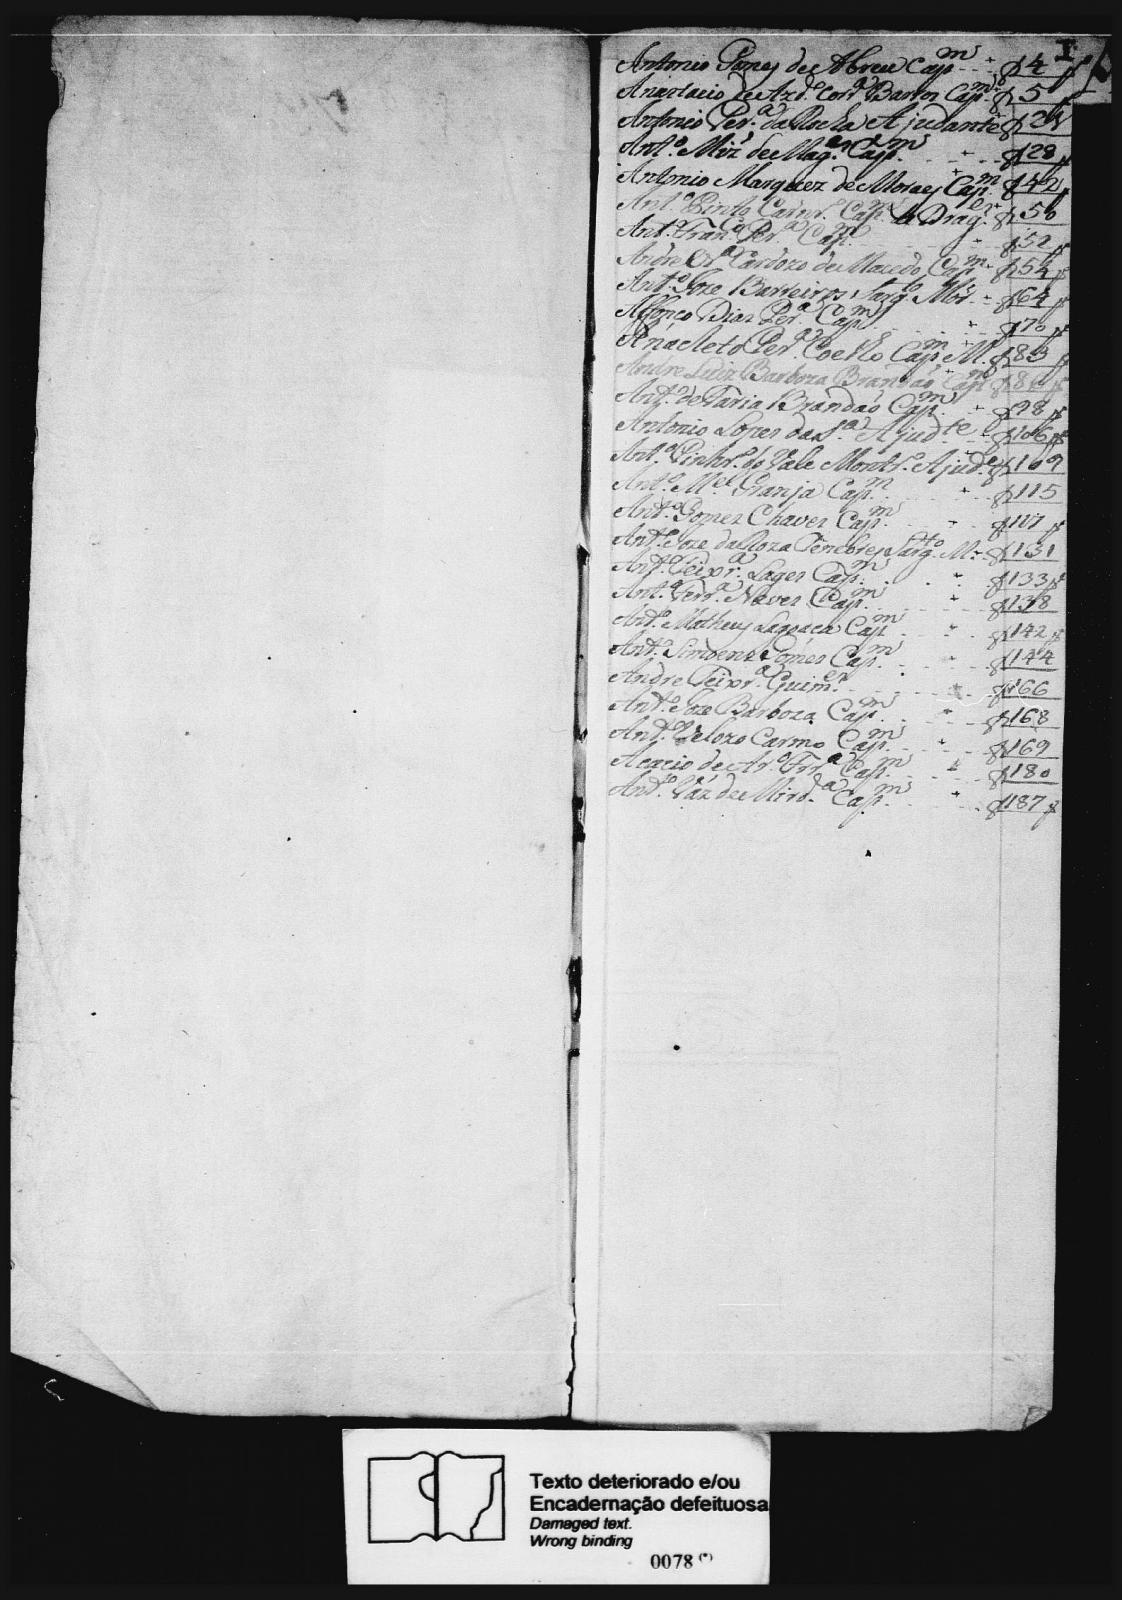 I
Antonio Gomes de Abreu Capm f 4
Anastacio de Azdo Corra Barros Capm f 5
Antonio Pera da Rocha Ajudante f 25
Anto Miz de Mages Capm f 28
Antonio Marquez de Moraes Capm f 42
Anto Pinto Carnro Capm de Drages f 50
Anto Franco Pera Capm f 52
Andre Cardozo de Macedo Capm f 54
Anto Joze Barreiros Sargto Mór f 64
Affonço Dias Pera Capm f 70
Anacleto Pera Coelho Capm M. f 83
Andre Luiz Barboza Brandaõ Capm f
Anto de Faria Brandaõ Capm f 98
Antonio Lopes da Sa Ajudte f 106
Anto Pinhro do Vale Montro Ajude f 109
Anto Mel Granja Capm f 115
Anto Gomes Chaves Capm f 117
Anto Joze da Roza Tenebres Sargto M. f 131
Anto Teixra Lages Capm f 133
Anto Ferra Neves Capm f 138
Anto Matheus Lagoaça Capm f 142
Anto Simoens Gomes Capm f 144
Andre Teixra Guimes f 166
Anto Joze Barboza Capm f 168
Anto Velozo Carmo Capm f 169
Acacio de Aro Frra Capm f 180
Anto Váz de Mirda Capm f 187
Texto deteriorado e/ou
Encadernação defeituosa
Damaged text.
Wrong binding
0078 (*)